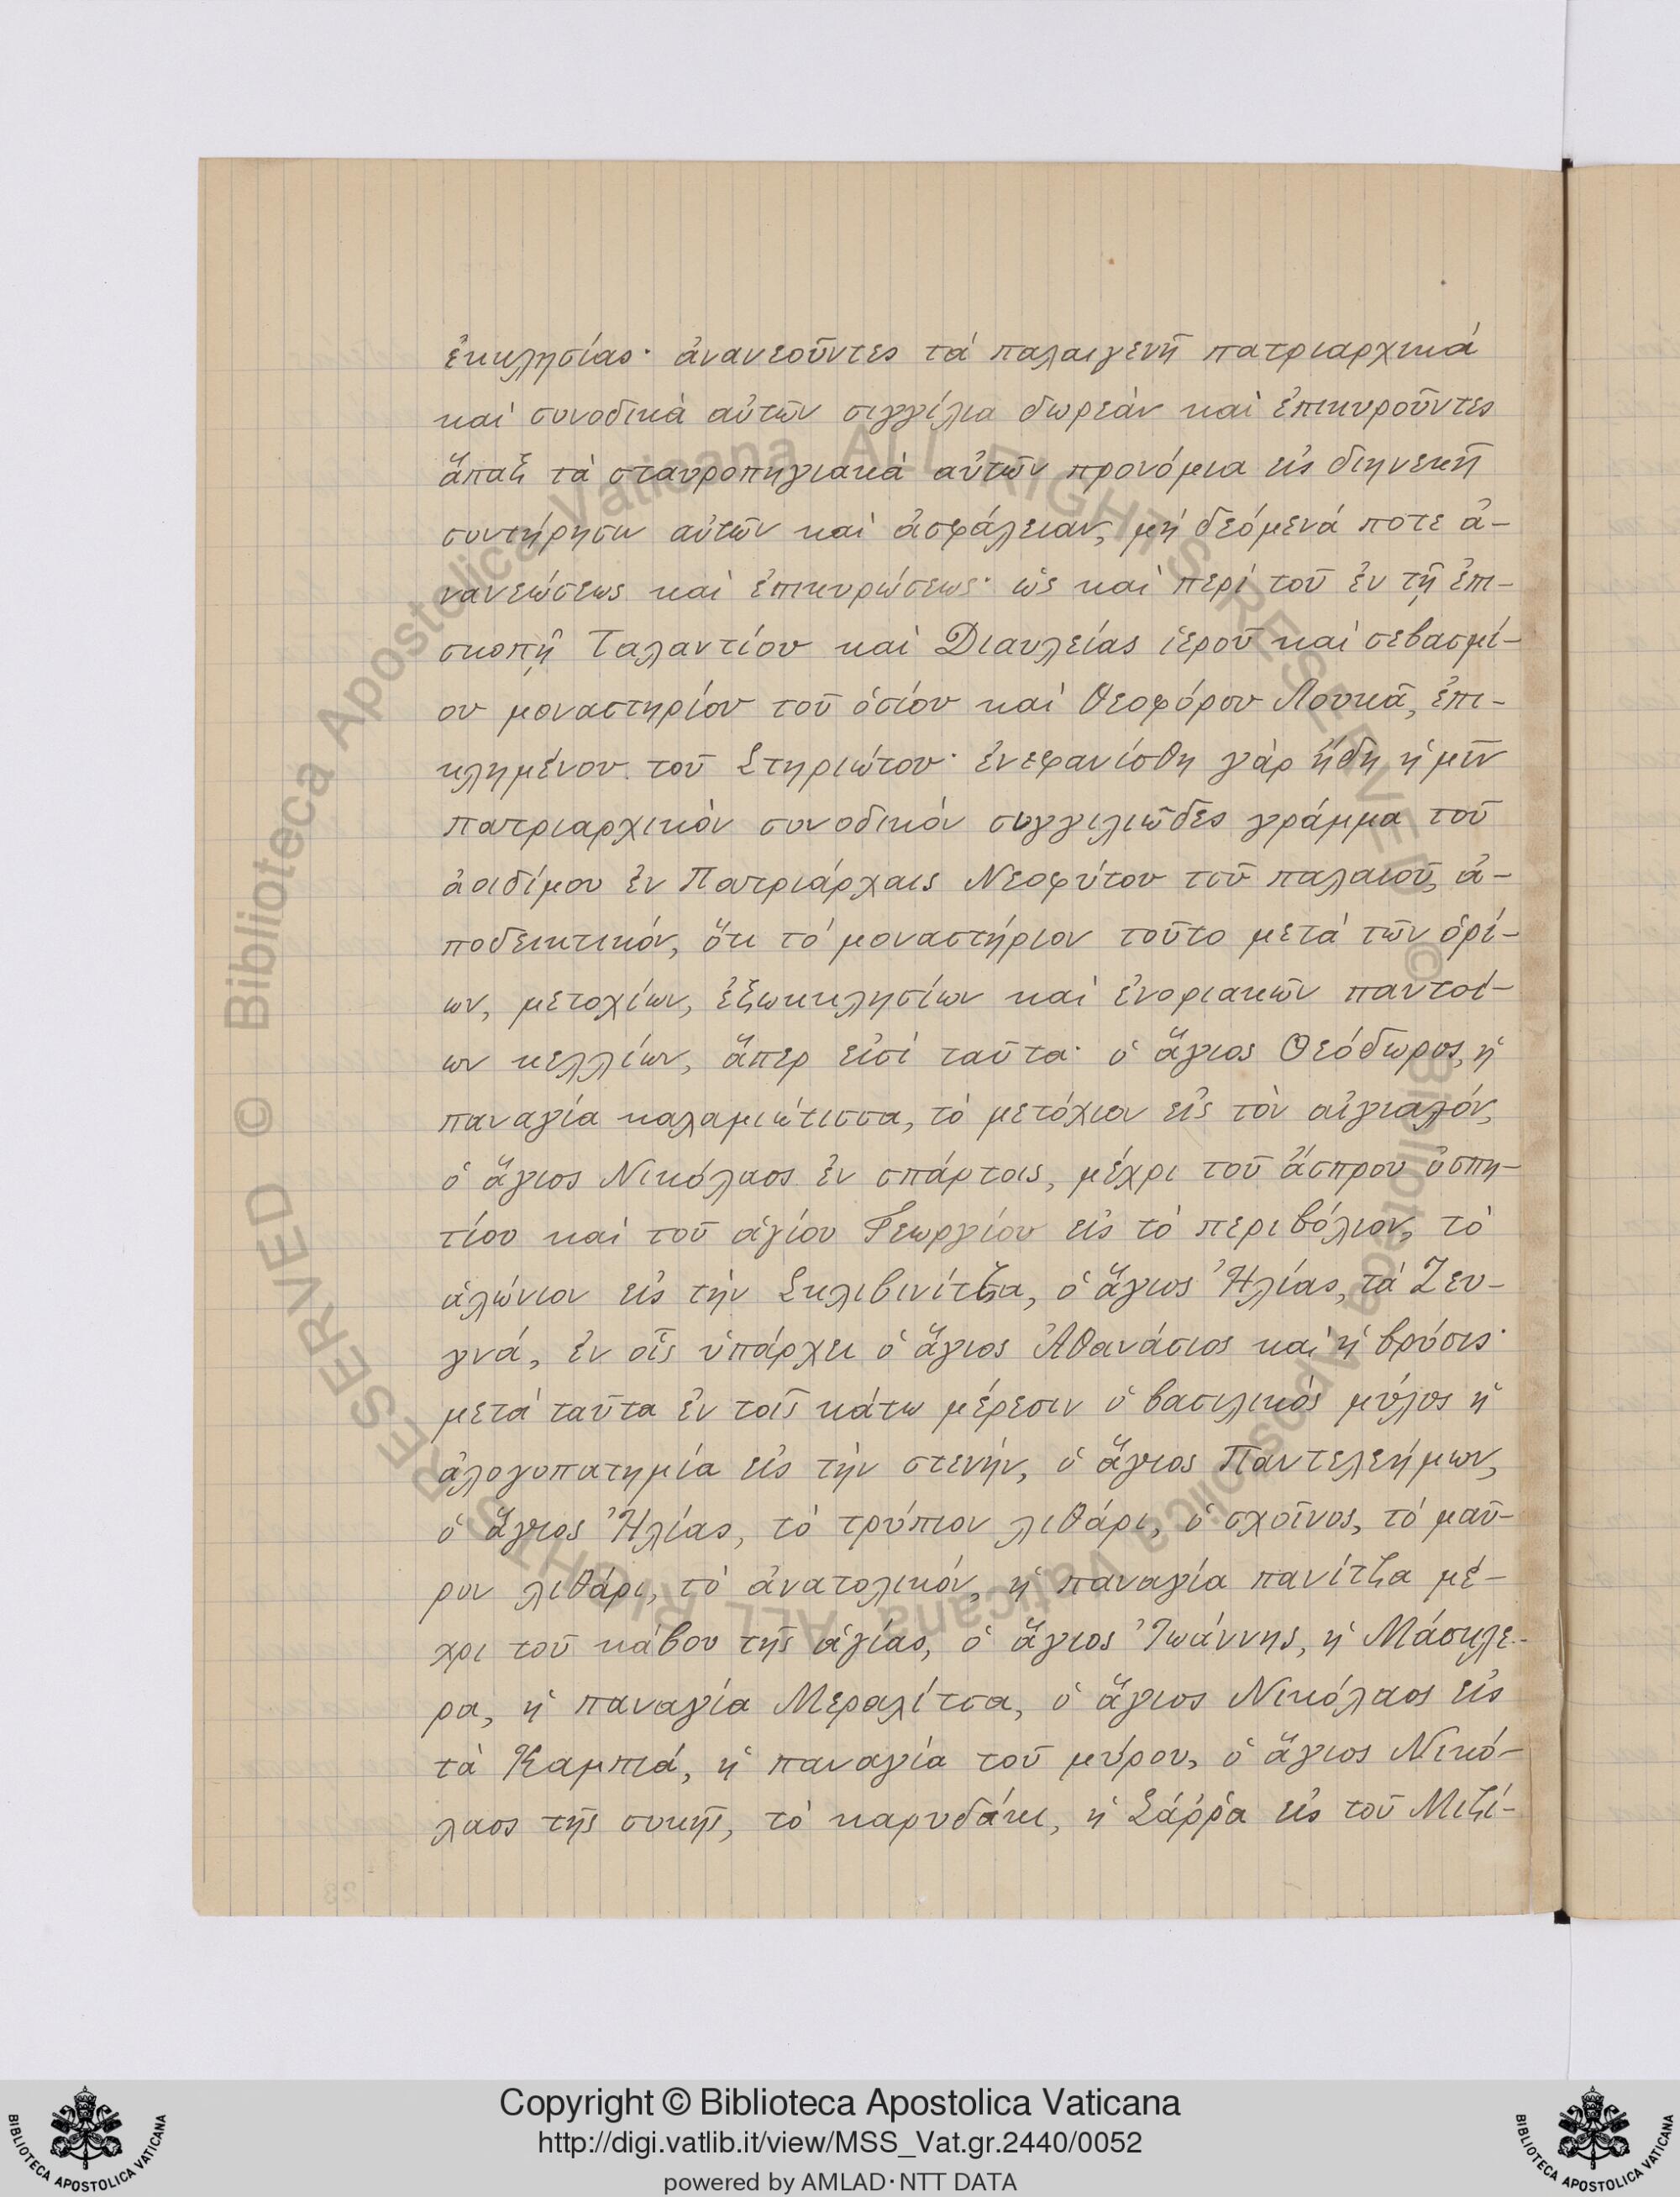 ἐκκλησίας· ἀνανεοῦντες τά παλαιγενῆ πατριαρχικά
καί συνοδικὰ αὐτῶν σιγγίλια δωρεάν καὶ ἐπικυροῦντες
ἅπαξ τὰ σταυροπηγιακὰ αὐτῶν προνόμια εἰς διηνεκῆ
συντήρησιν αὐτῶν καὶ ἀσφάλειαν, μή δεόμενά ποτε ἀ-
νανεώσεως καὶ ἐπικυρώσεως· ὡς καὶ περί τοῦ ἐν τῇ ἐπι-
σκοπῇ Ταλαντίου καὶ Διαυλείας ἱεροῦ καί σεβασμί-
ου μοναστηρίου τοῦ ὁσίου καί θεοφόρου Λουκᾶ, ἐπι-
κλημένου τοῦ Στηριώτου· ἐνεφανίσθη γάρ ἤδη ἡμῖν
πατριαρχικόν συνοδικόν συγγιλιῶδες γράμμα τοῦ
ἀοιδίμου ἐν Πατριάρχαις Νεοφύτου τοῦ παλαιοῦ, ἀ-
ποδεικτικόν, ὅτι τό μοναστήριον τοῦτο μετά τῶν ὁρί-
ων, μετοχίων, ἐξωκκλησίων καί ἐνοριακῶν παντοί-
ων κελλίων, ἅπερ εἰσί ταῦτα· ὁ ἅγιος Θεόδωρος, ἡ
παναγία καλαμιώτισσα, τὸ μετόχιον εἰς τὸν αἰγιαλόν,
ὁ ἅγιος Νικόλαος ἐν σπάρτοις, μέχρι τοῦ ἄσπρου ὁσπη-
τίου καί τοῦ ἁγίου Γεωργίου εἰς τὸ περιβόλιον, τὸ
ἁλώνιον εἰς τὴν Σκλιβινίτζα, ὁ ἅγιος Ἠλίας, τά Ζευ-
γνά, ἐν οἷς ὑπάρχει ὁ ἅγιος Ἀθανάσιος καί ἡ βρύσις·
μετά ταῦτα ἐν τοῖς κάτω μέρεσιν ὁ βασιλικὸς μύλος ἡ
ἀλογοπατημία εἰς τὴν στενήν, ὁ ἅγιος Παντελεήμων,
ὁ ἅγιος Ἠλίας, τὸ τρύπιον λιθάρι, ὁ σχοῖνος, τό μαῦ-
ρον λιθάρι, τὸ ἀνατολικόν, ἡ παναγία πανίτζα μέ-
χρι τοῦ κάβου τῆς ἁγίας, ὁ ἅγιος Ἰωάννης, ἡ Μάσκλε-
ρα, ἡ παναγία Μεραλίτσα, ὁ ἅγιος Νικόλαος εἰς
τὰ Καμπιά, ἡ παναγία τοῦ μύρου, ὁ ἅγιος Νικό-
λαος τῆς συκῆς, τὸ καρυδάκι, ἡ Σάῤῥα εἰς τοῦ Μιζί-
Copyright © Biblioteca Apostolica Vaticana
http://digi.vatlib.it/view/MSS_Vat.gr.2440/0052
powered by AMLAD·NTT DATA